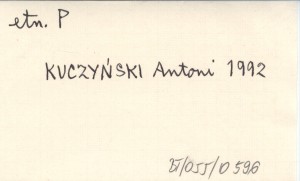 etn. P
KUCZYŃSKI Antoni 1992
BJ/OJJ/D 596